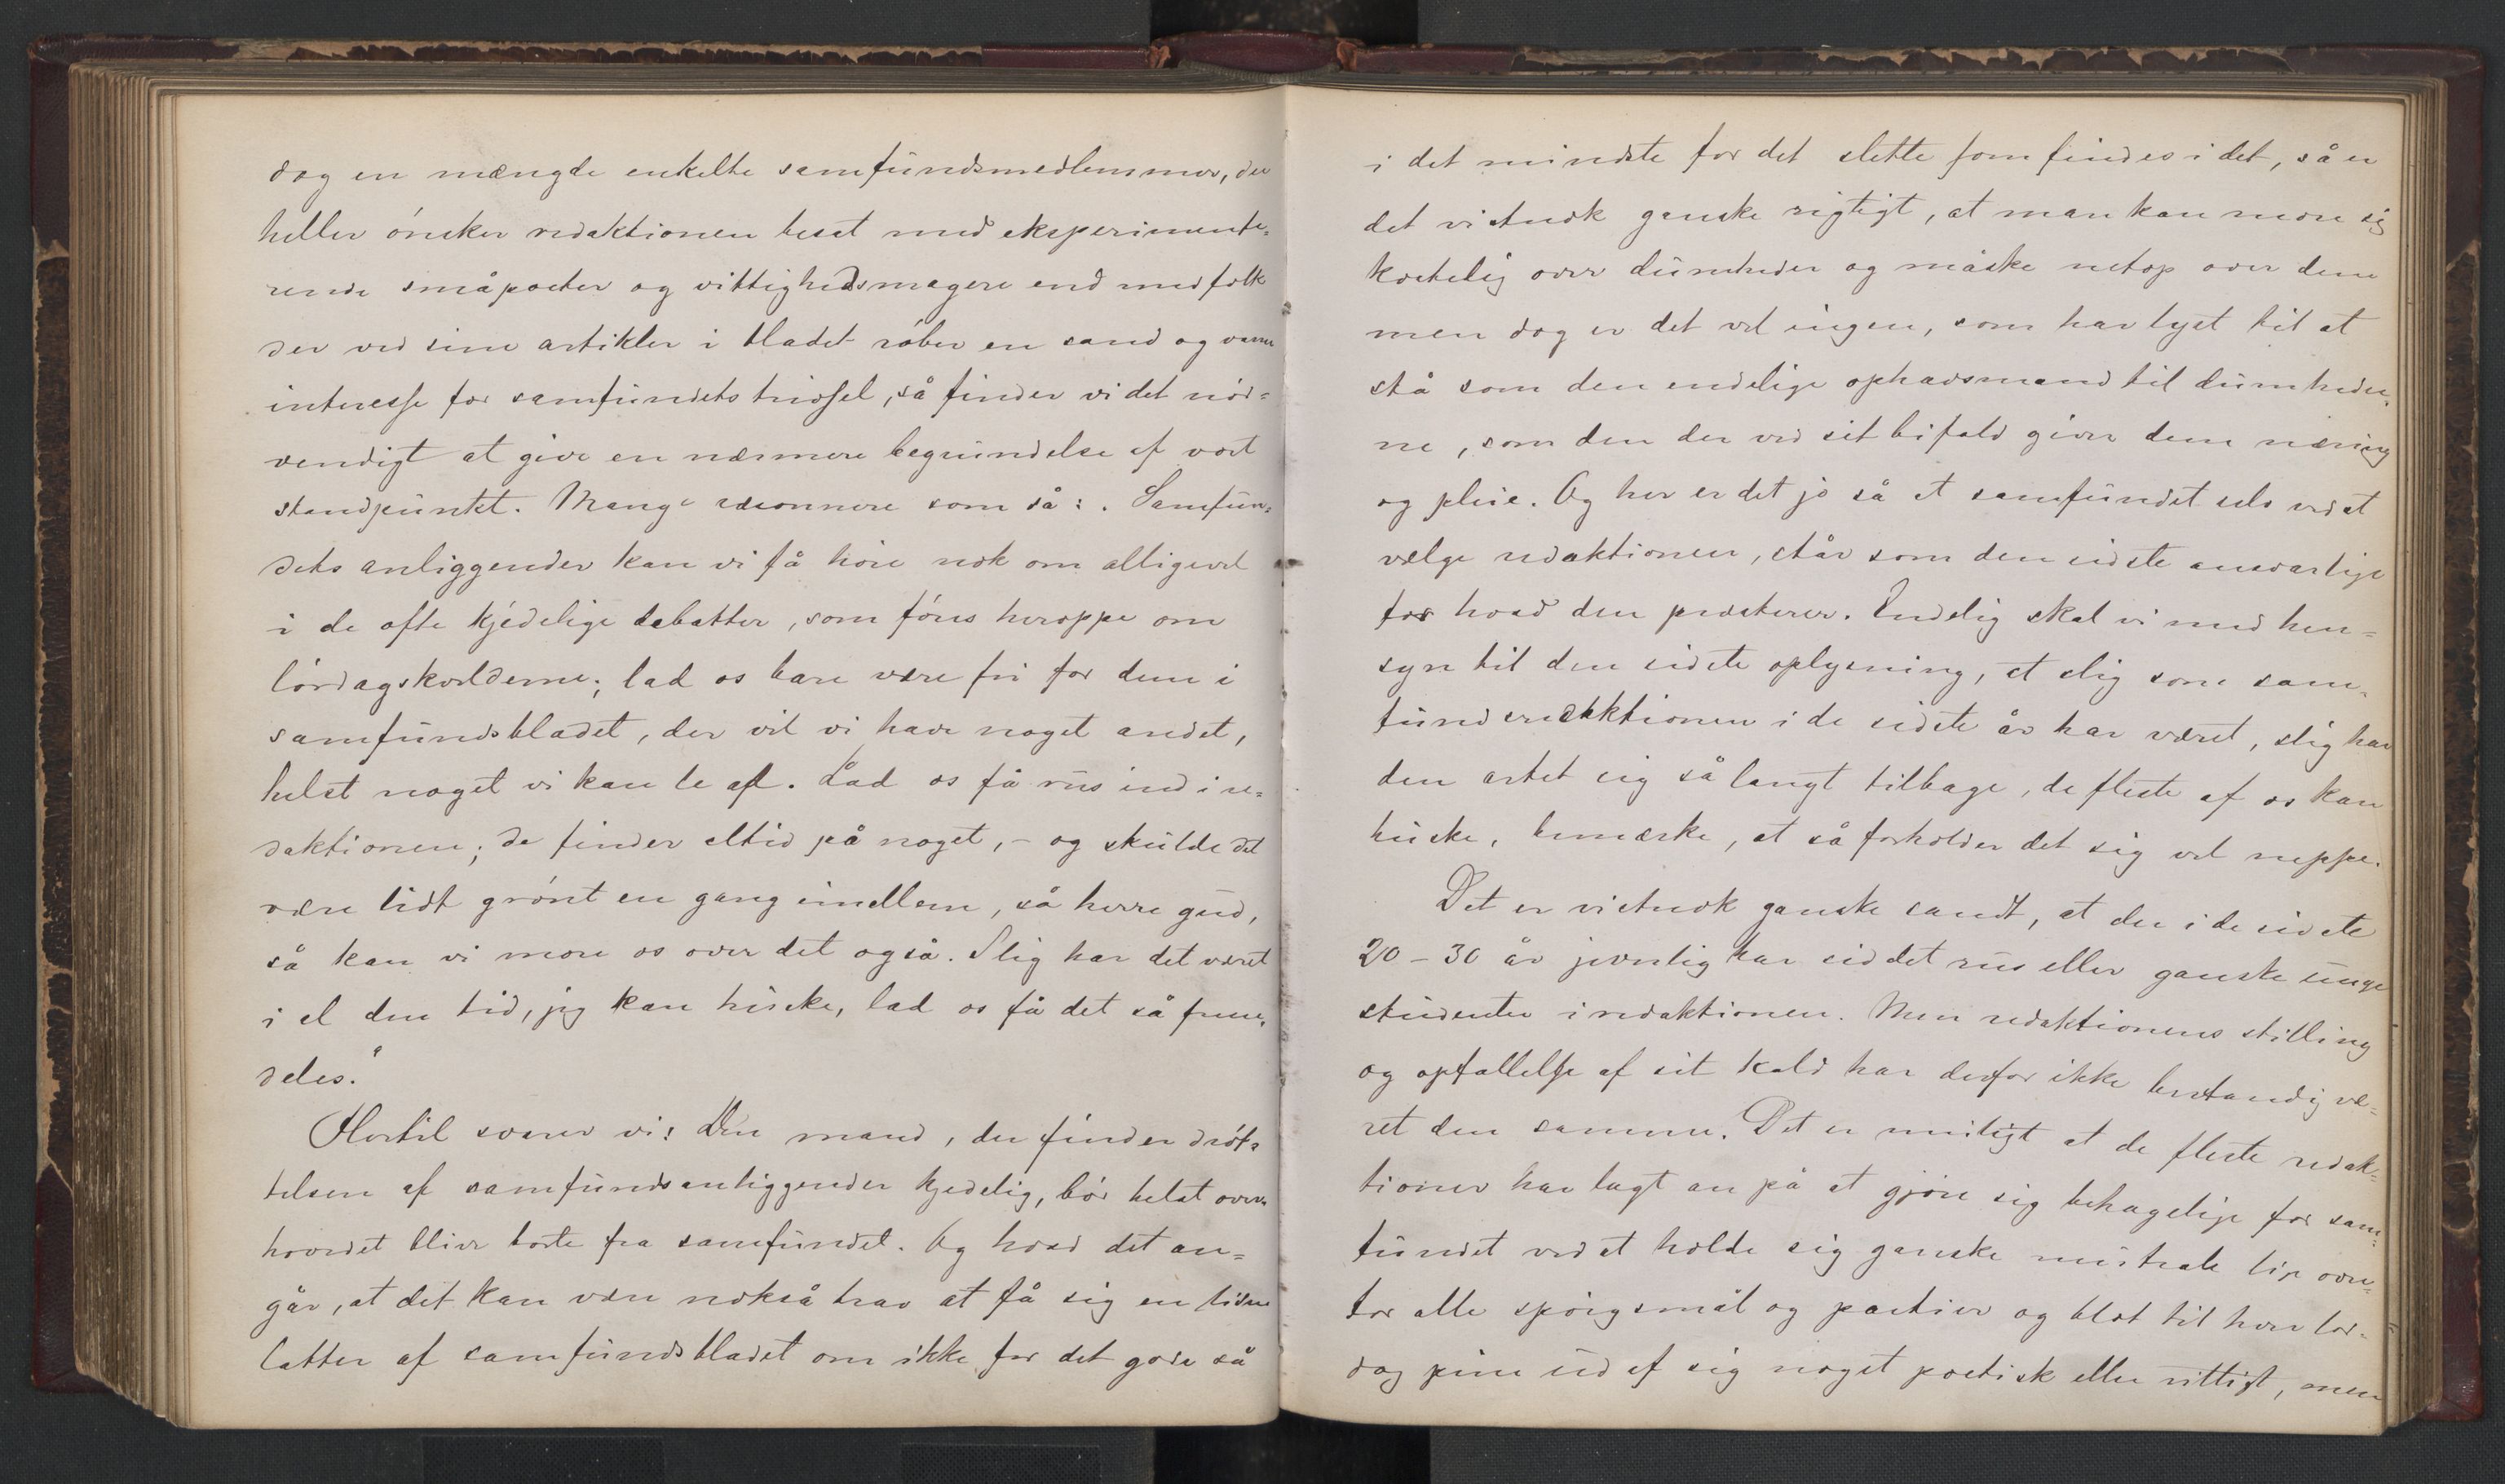 dog en mængde enkelte samfundsmedlemmer, der
heller ønsker redaktionen besat med eksperimente-
rende småpoeter og vittighedsmagere end med folk
der ved sine artikler i bladet røber en sand og varm
interesse for samfundets trivsel, så finder vi det nød-
vendigt at give en nærmere begrundelse af vort
standpunkt. Mange ræsonnere som så: „Samfun-
dets anliggender kan vi få høre nok om alligevel
i de ofte kjedelige debatter, som føres heroppe om
lørdagskvelderne; lad os bare være fri for dem i
samfundsbladet, der vil vi have noget andet,
helst noget vi kan le af. Lad os få rus ind i re-
daktionen; de finder altid på noget, – og skulde det
være lidt grønt en gang imellem, så herre gud,
så kan vi more os over det også. Slig har det været
i al den tid, jeg kan huske, lad os få det så frem-
deles."
Hertil svarer vi: Den mand, der finder drøf-
telsen af samfundsanliggender kjedelig, bør helst over-
hovedet blive borte fra samfundet. Og hvad det an-
går, at det kan være nokså brav at få sig en liden
latter af samfundsbladet om ikke for det gode så
i det mindste for det slette som findes i det, så er
det vistnok ganske rigtigt, at man kan more sig
kostelig over dumheder og måske netop over dem
men dog er det vel ingen, som har lyst til at
stå som den endelige ophavsmand til dumheder-
ne, som den der ved sit bifald giver dem næring
og pleie. Og her er det jo så at samfundet selv ved at
vælge redaktionen, står som den sidste ansvarlige
for hvad den præsterer. Endelig skal vi med hen-
syn til den sidste oplysning, at slig som sam-
fundsredaktionen i de sidste år har været, slig har
den artet sig så langt tilbage, de fleste af os kan
huske, bemærke, at så forholder det sig vel neppe.
Det er vistnok ganske sandt, at der i de sidste
20 – 30 år jevnlig har siddet rus eller ganske unge
studenter i redaktionen. Men redaktionens stilling
og opfattelse af sit kald har derfor ikke bestandig væ-
ret den samme. Det er muligt at de fleste redak-
tioner har lagt an på at gjøre sig behagelige for sam-
fundet ved at holde sig ganske nøitrale lige over-
for alle spørgsmål og partier og blot til hver lør-
dag pine ud af sig noget poetisk eller vittigt, men